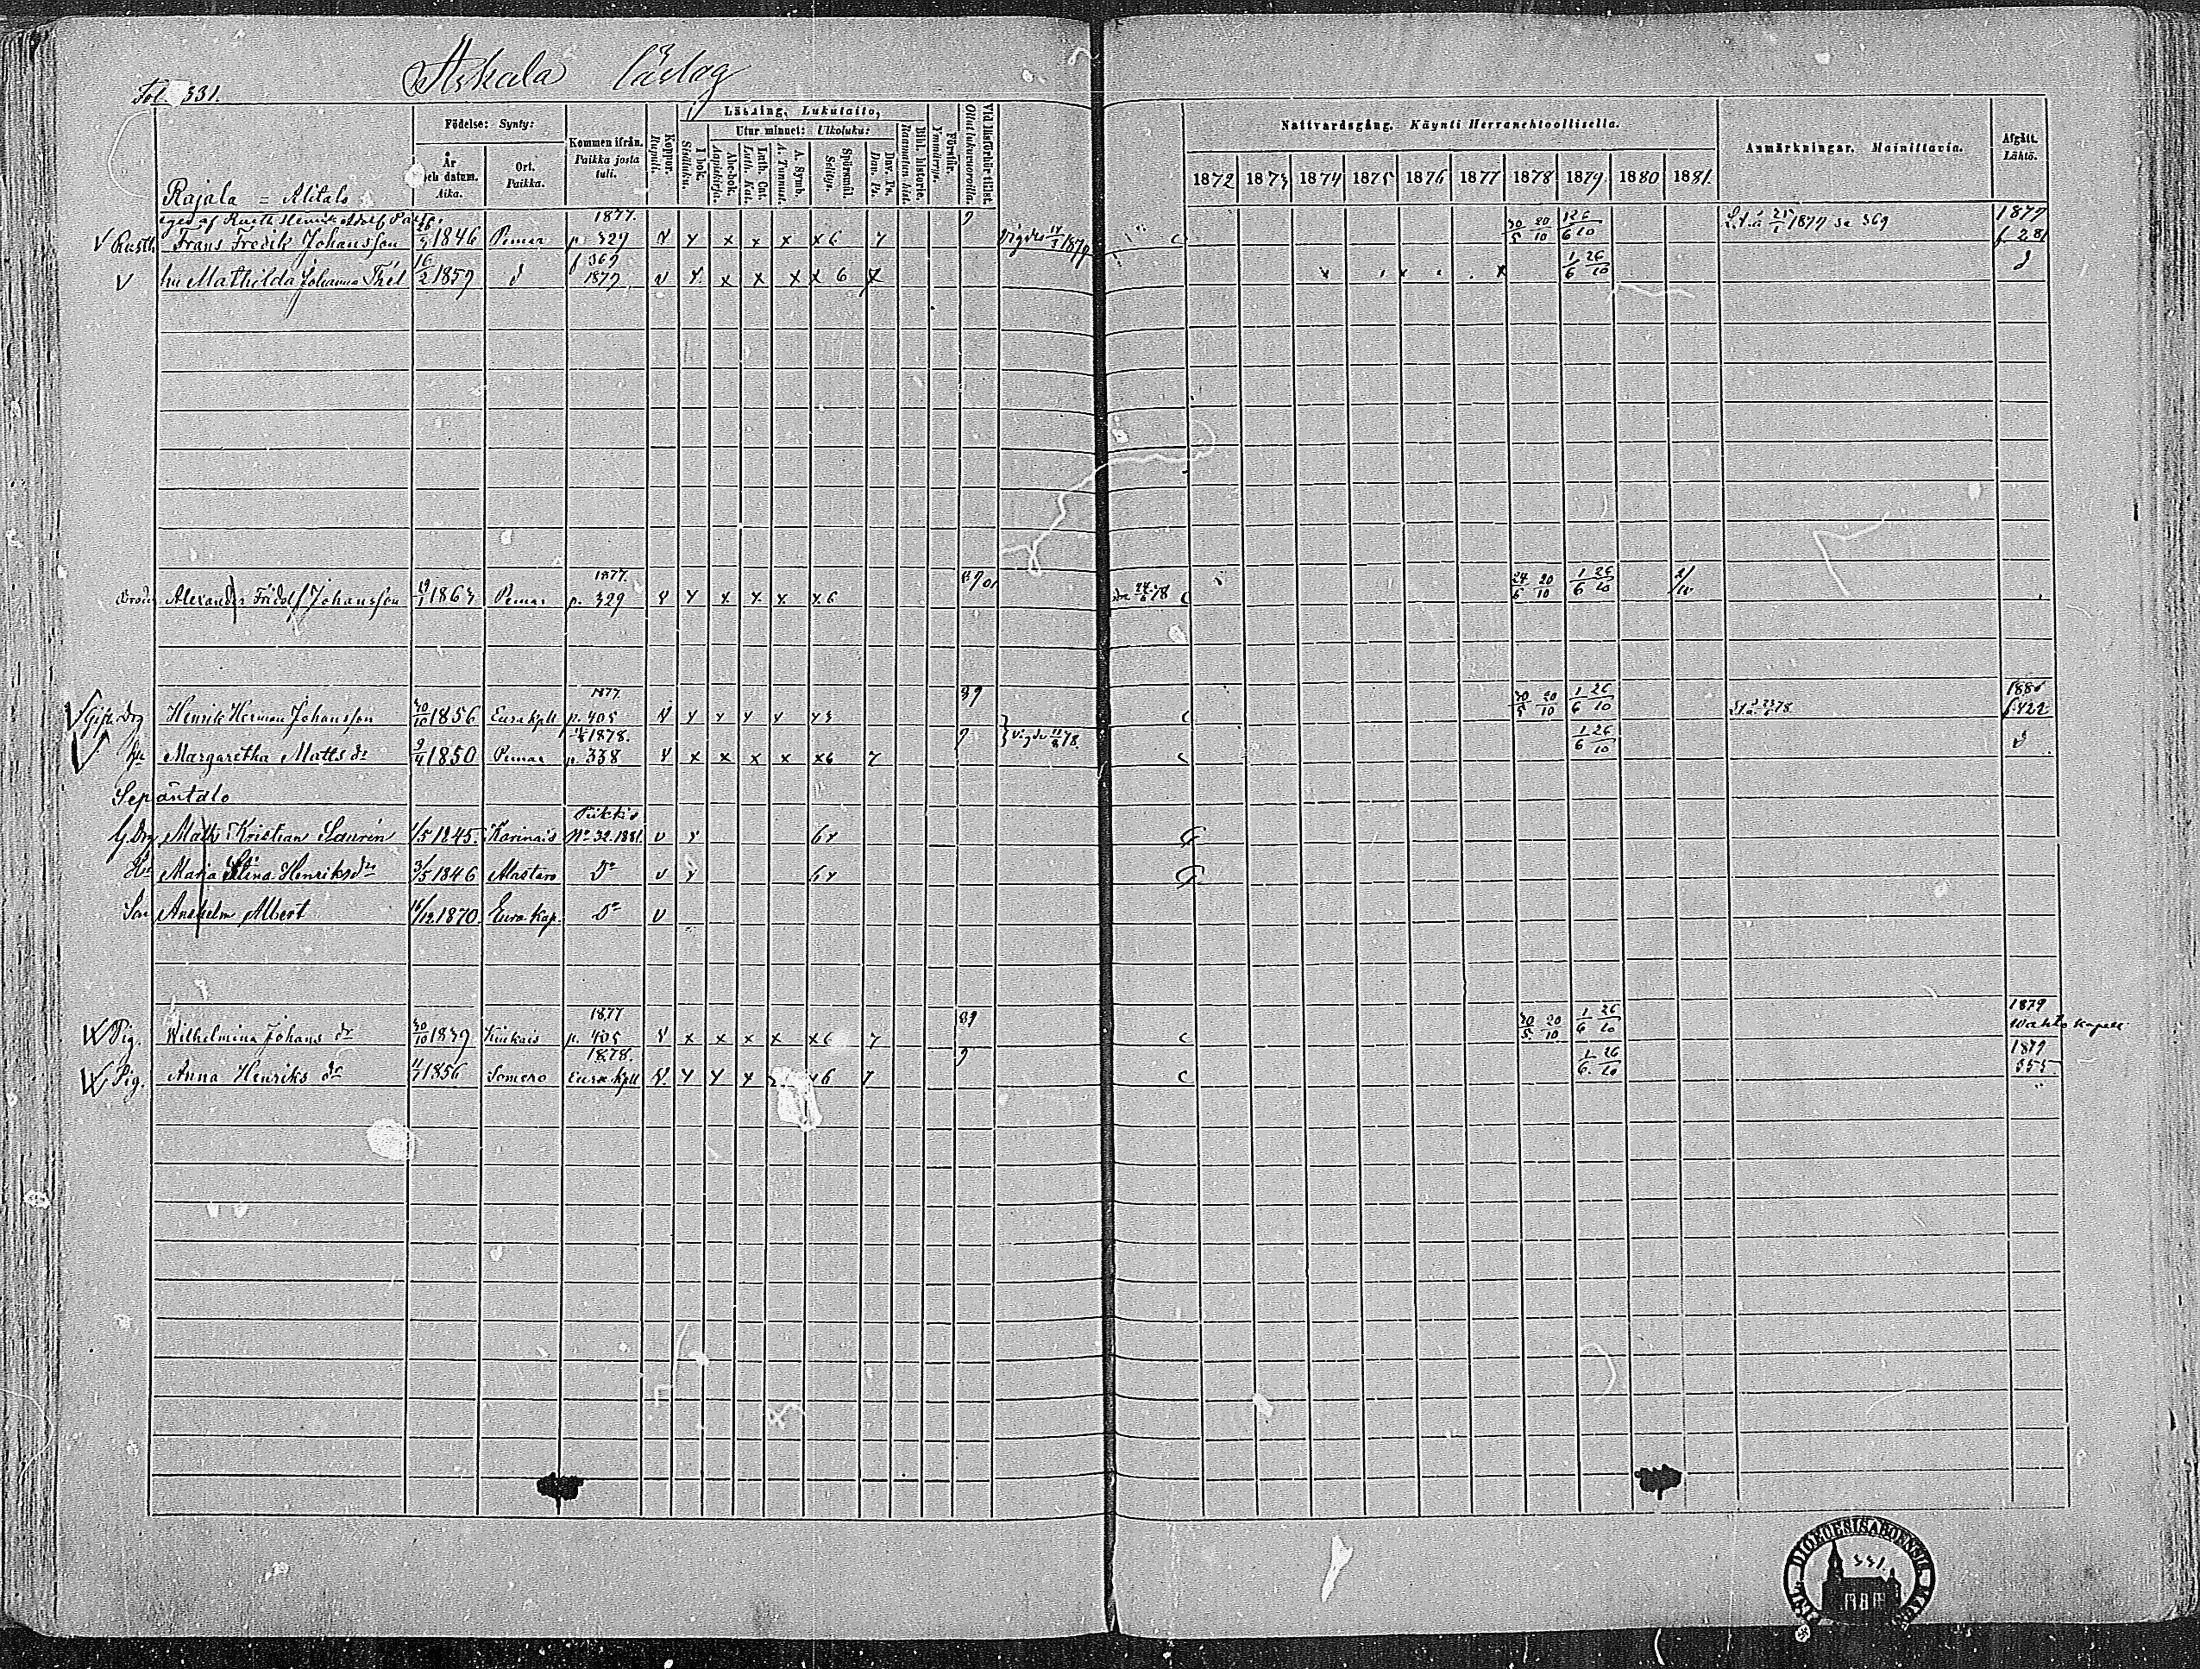 Fol. 331.
Askala lästag
Födelse: Synty:
År och datum. Aika.
Ort. Paikka.
Kommen ifrån. Paikka josta tuli.
Koppor. Rupuli.
Läsning, Lukutaito,
I bok. Sisäluku.
Utur minnet: Ulkoluku:
Abc-bok. Aapiskirja.
Luth. Cat. Luth. Kat.
A. Symb.
Spörsmål. Selitys.
Dav. Ps. Dav. Ps.
Bibl. historie. Raamatun hist.
Förstår. Ymmärrys.
Vid läsförhör tillst. Ollut lukuvuoroilla.
Nattvardsgång. Käynti Herranehtoollisella.
1872 1873 1874 1875 1876 1877 1878 1879 1880 1881.
Anmärkningar. Mainittavia.
Afgått. Lähtö.
Rajala = Alitalo
eges af Rusth Henrik Adolf
1877. 9 1879
V Rusth. Frans Fredik Johansson 1846 Pemar p. 329 V y x x x x 6 7 Vigde 1879 C 30/5 20/10 1 26/6 10 1879 se 369 f. 281
V hu Mathilda Johanna Thél 16/2 1859 d f 369 1879 v y. x x x x 6 x 1/6 26/10 d
1877.
Broder Alexander Fridolf Johansson 19/1 1863 Pemar p. 329 V y x x x x 6 24/6 78 C 24/6 20/10 1/6 26/10 2/10
1877. 89 1880
V Gift. Drg Henrik Herman Johansson 30/10 1856 Eura kpll p. 405 V y y y y y 3 C 30/5 20/10 1/6 26/10 f. 422
1878. 9
V hu Margaretha Matts dr 9/4 1850 Pemar p. 338 V x x x x x 6 7 Vigde 11/8 78. C 1/6 26/10 d
Sepäntalo
G. Drg Math Kristian Laurén 1/5 1845. Karinais Piikkis No 32. 1881. v y 6 y G
Hu Maria Stina Henriksdr 3/5 1846 Alastaro Do v y 6 y G
Son Anshelm Albert 16/12 1870. Eura Kap. Do v
1877 89 1879
V Pig. Wilhelmina Johans dr 30/10 1839 Kiukais p. 405 V x x x x x 6 7 C 30/5. 20/10 1/6 26/10 Wahto Kapell
1878. 9 1879
V Pig. Anna Henriks dr 4/7 1856 Somero Eura kpll V. y y y y 6 7 C 1/6. 26/10 355
331.